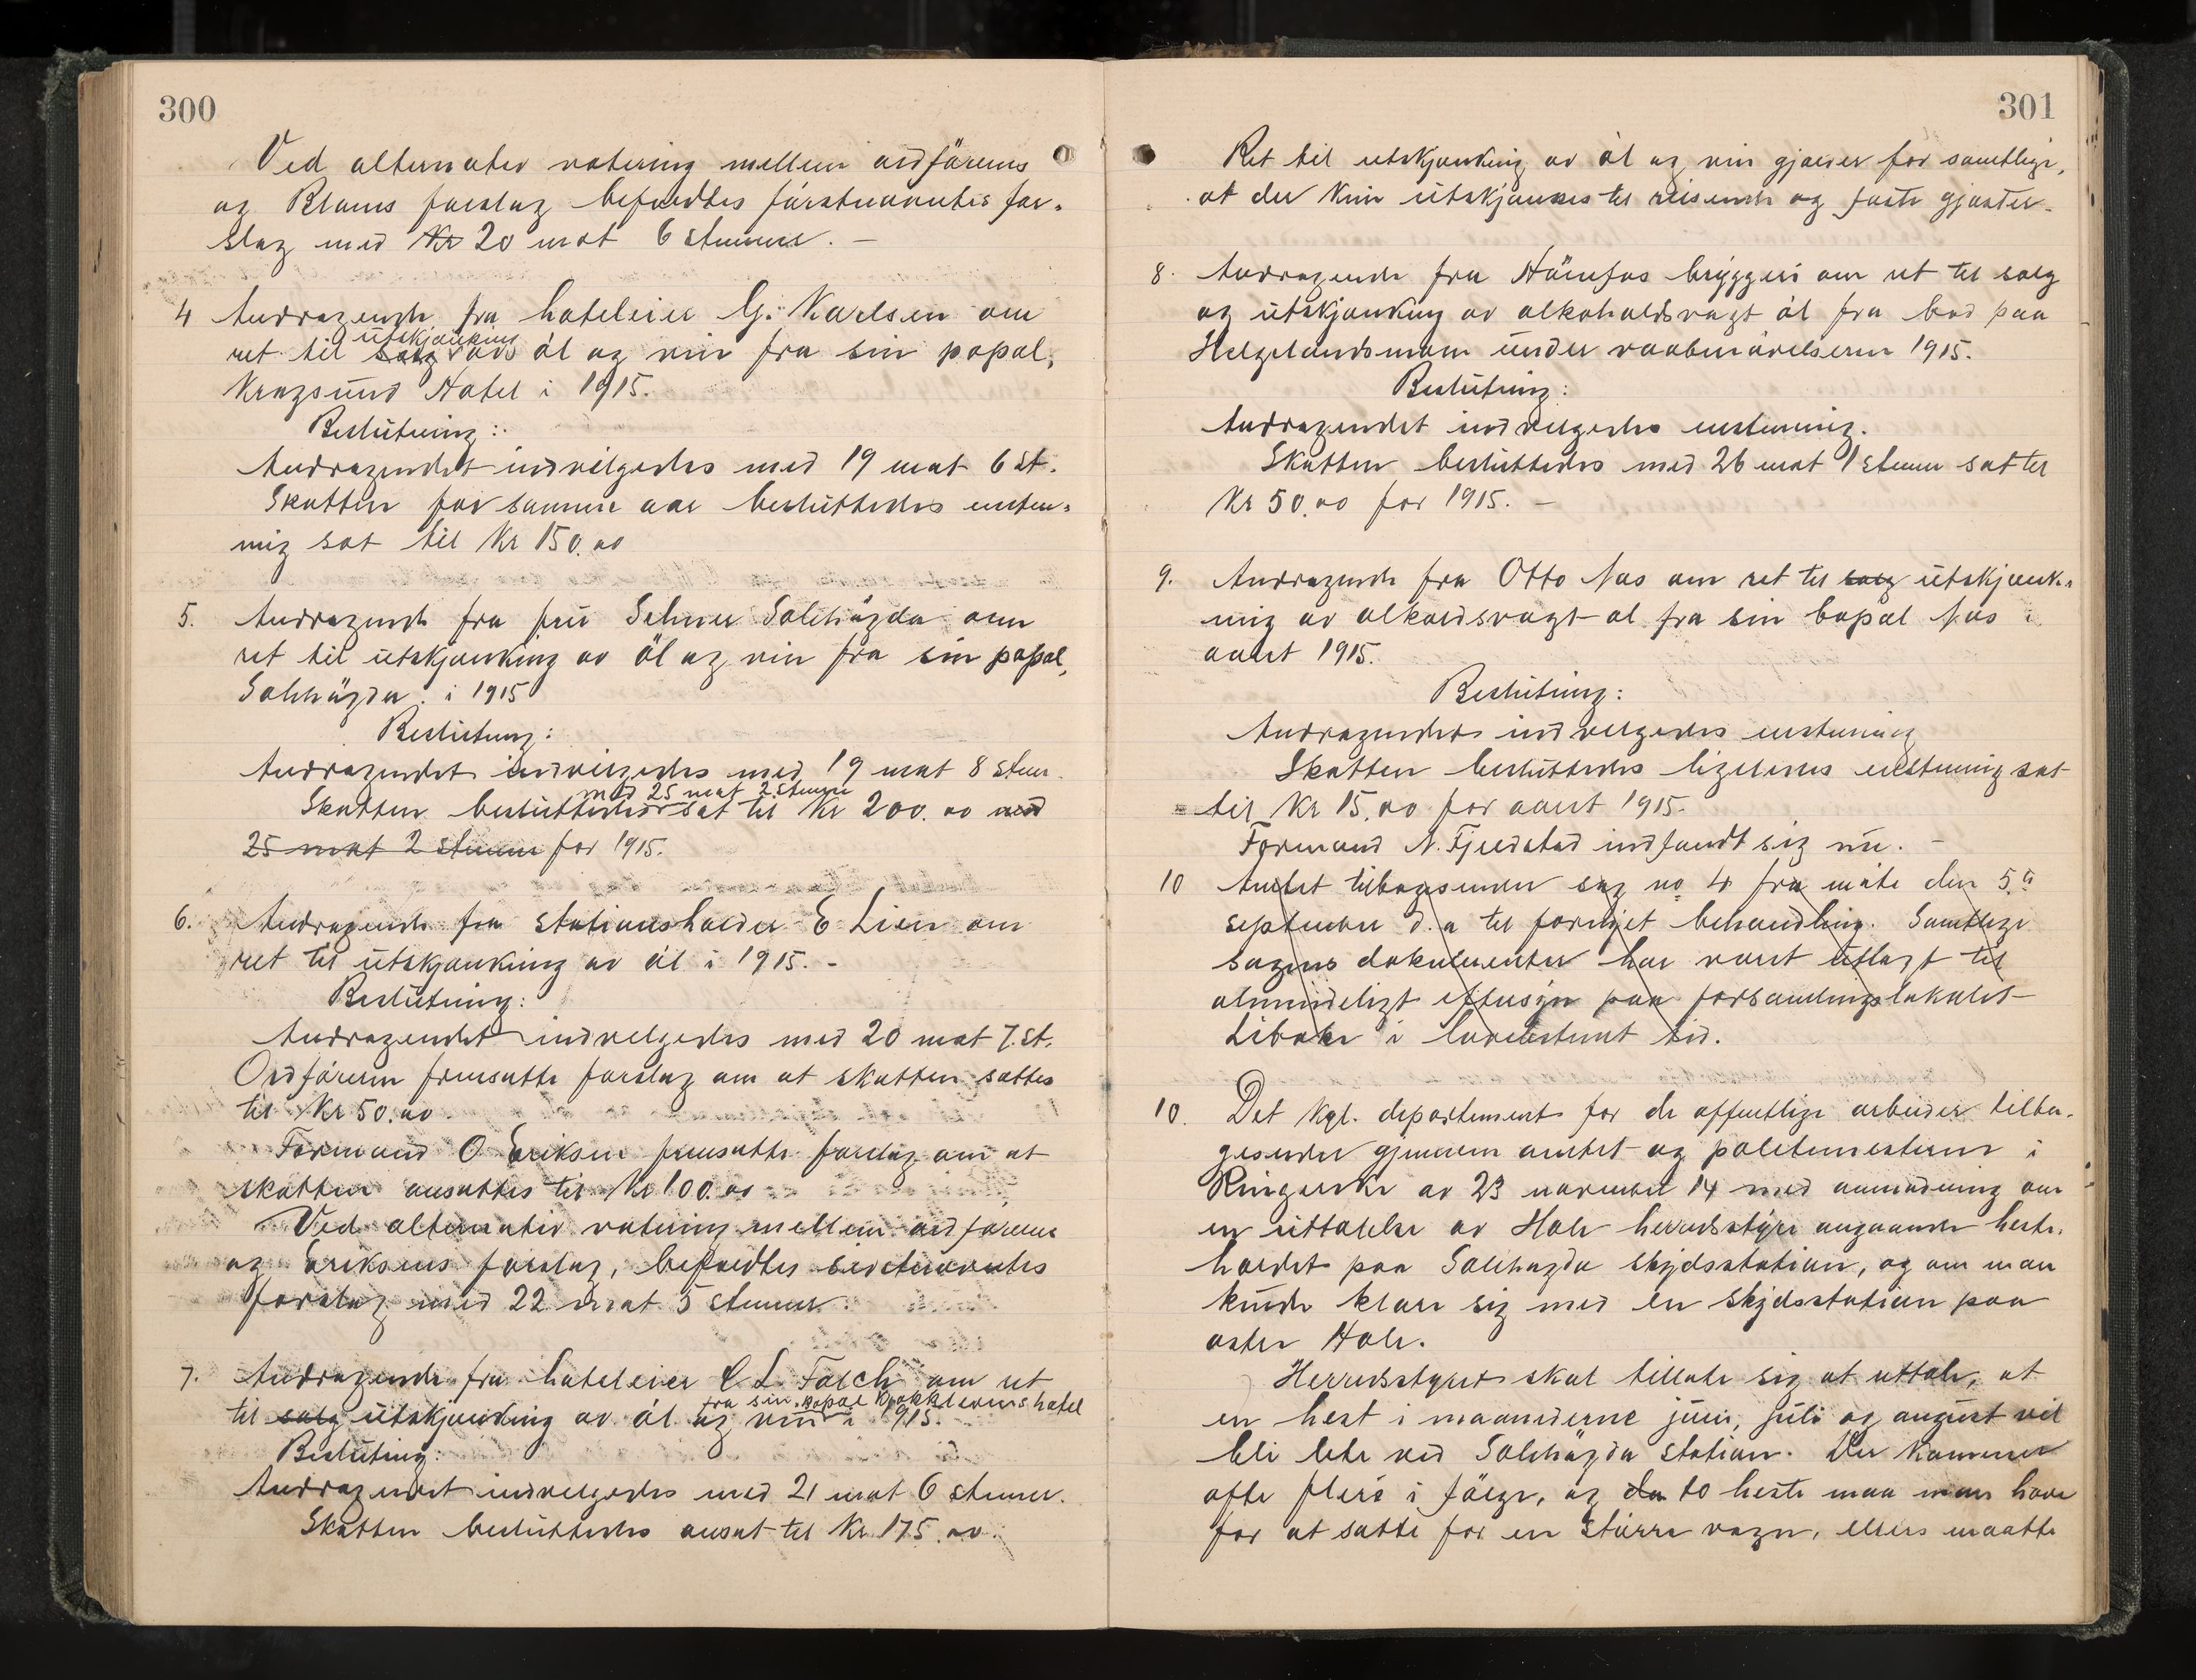 300
Ved alternativ votering mellem ordførerens
og Blaws forslag befuldtes førstnævntes for-
slag med Kr 20 mot 6 stemmer. —
4 Andragende fra hoteleier G. Karlsen om
utskjænking
ret til salg av øl og vin fra sin popæl,
Kragsund Hotel i 1915.
Beslutning:
Andragendet indvilgedes med 19 mot 6 st.
Skatten for samme aar besluttedes enstem-
mig sat til Kr 150.00
5. Andragende fra fru Solhaugda om
ret til utskjænking av øl og vin fra sin popæl,
Solihøgda i 1915
Beslutning:
Andragendet indvilgedes med 19 mot 8 stem.
med 25 mot 2 stemmer
Skatten besluttedes sat til Kr 200.00 med
25 mot 2 stemm for 1915.
6. Andragende fra stationsholder E Lien om
ret til utskjænking av øl i 1915. -
Beslutning:
Andragendet indvelgedes med 20 mot 7 st.
Ordføreren fremsatte forslag om at skatten sættes
til Kr 50.00
Formand O Eriksen fremsatte forslag om at
skatten ansættes til Kr 100.00
Ved alternativ votering mellem ordførerens
og Eriksens forslag, befuldtes sidstnævntes
forslag med 22 mot 5 stemmer.
7. Andragende fra hoteleier C L. Falch om ret
fra sin bopæl Kjokkleivens hotel
til salg utskjænking av øl og vin i 1915.
Beslutning:
Andragendet indvelgedes med 21 mot 6 stemmer.
Skatten besluttedes ansat til Kr 175.00
301
Ret til utskjænking av øl og vin gjælder for samtlige,
at der kun utskjænkes til reisende og faste gjæster.
8. Andragende fra Hönefos bryggeri om ret til salg
og utskjænking av alkoholdsvagt øl fra bod paa
Helgelandsmoen under vaabenøvelserne 1915.
Beslutning:
Andragendet indvelgedes enstemmig.
Skatten besluttedes med 26 mot 1 stemme sat til
Kr 50.00 for 1915. —
9. Andragende fra Otto Næs om ret til salg utskjænk-
ning av alkoldsvagt øl fra sin bopæl Næs i
aaret 1915.
Beslutning:
Andragendet indvelgedes enstemmig
Skatten besluttedes ligeledes enstemmig sat
til Kr 15.00 for aaret 1915.
Formand N. Fjeldstad indfandt sig nu. —
10 Amtet tilbagesender sag no 4 fra møte den 5te
september d. a til fornyet behandling. Samtlige
sagens dokumenter har været utlagt til
almindeligt eftersyn paa forsamlingslokalet
Libakke i lovbestemt tid.
10. Det kgl. departement for de offentlige arbeider tilba-
gesender gjennem amtet og politimesteren i
Ringerike av 23 november 14 med anmodning om
en uttalelse av Hole herredsstyre angaaende heste-
holdet paa Solihøgda skydsstation, og om man
kunde klare sig med en skydsstation paa
østre Hole.
Herredsstyret skal tillate sig at uttale, at
en hest i maanederne juni, juli og august vil
bli lite ved Solihøgda station. Der kommer
ofte flere i følge, og da to heste maa man have
for at sætte for en større vogn, ellers maatte